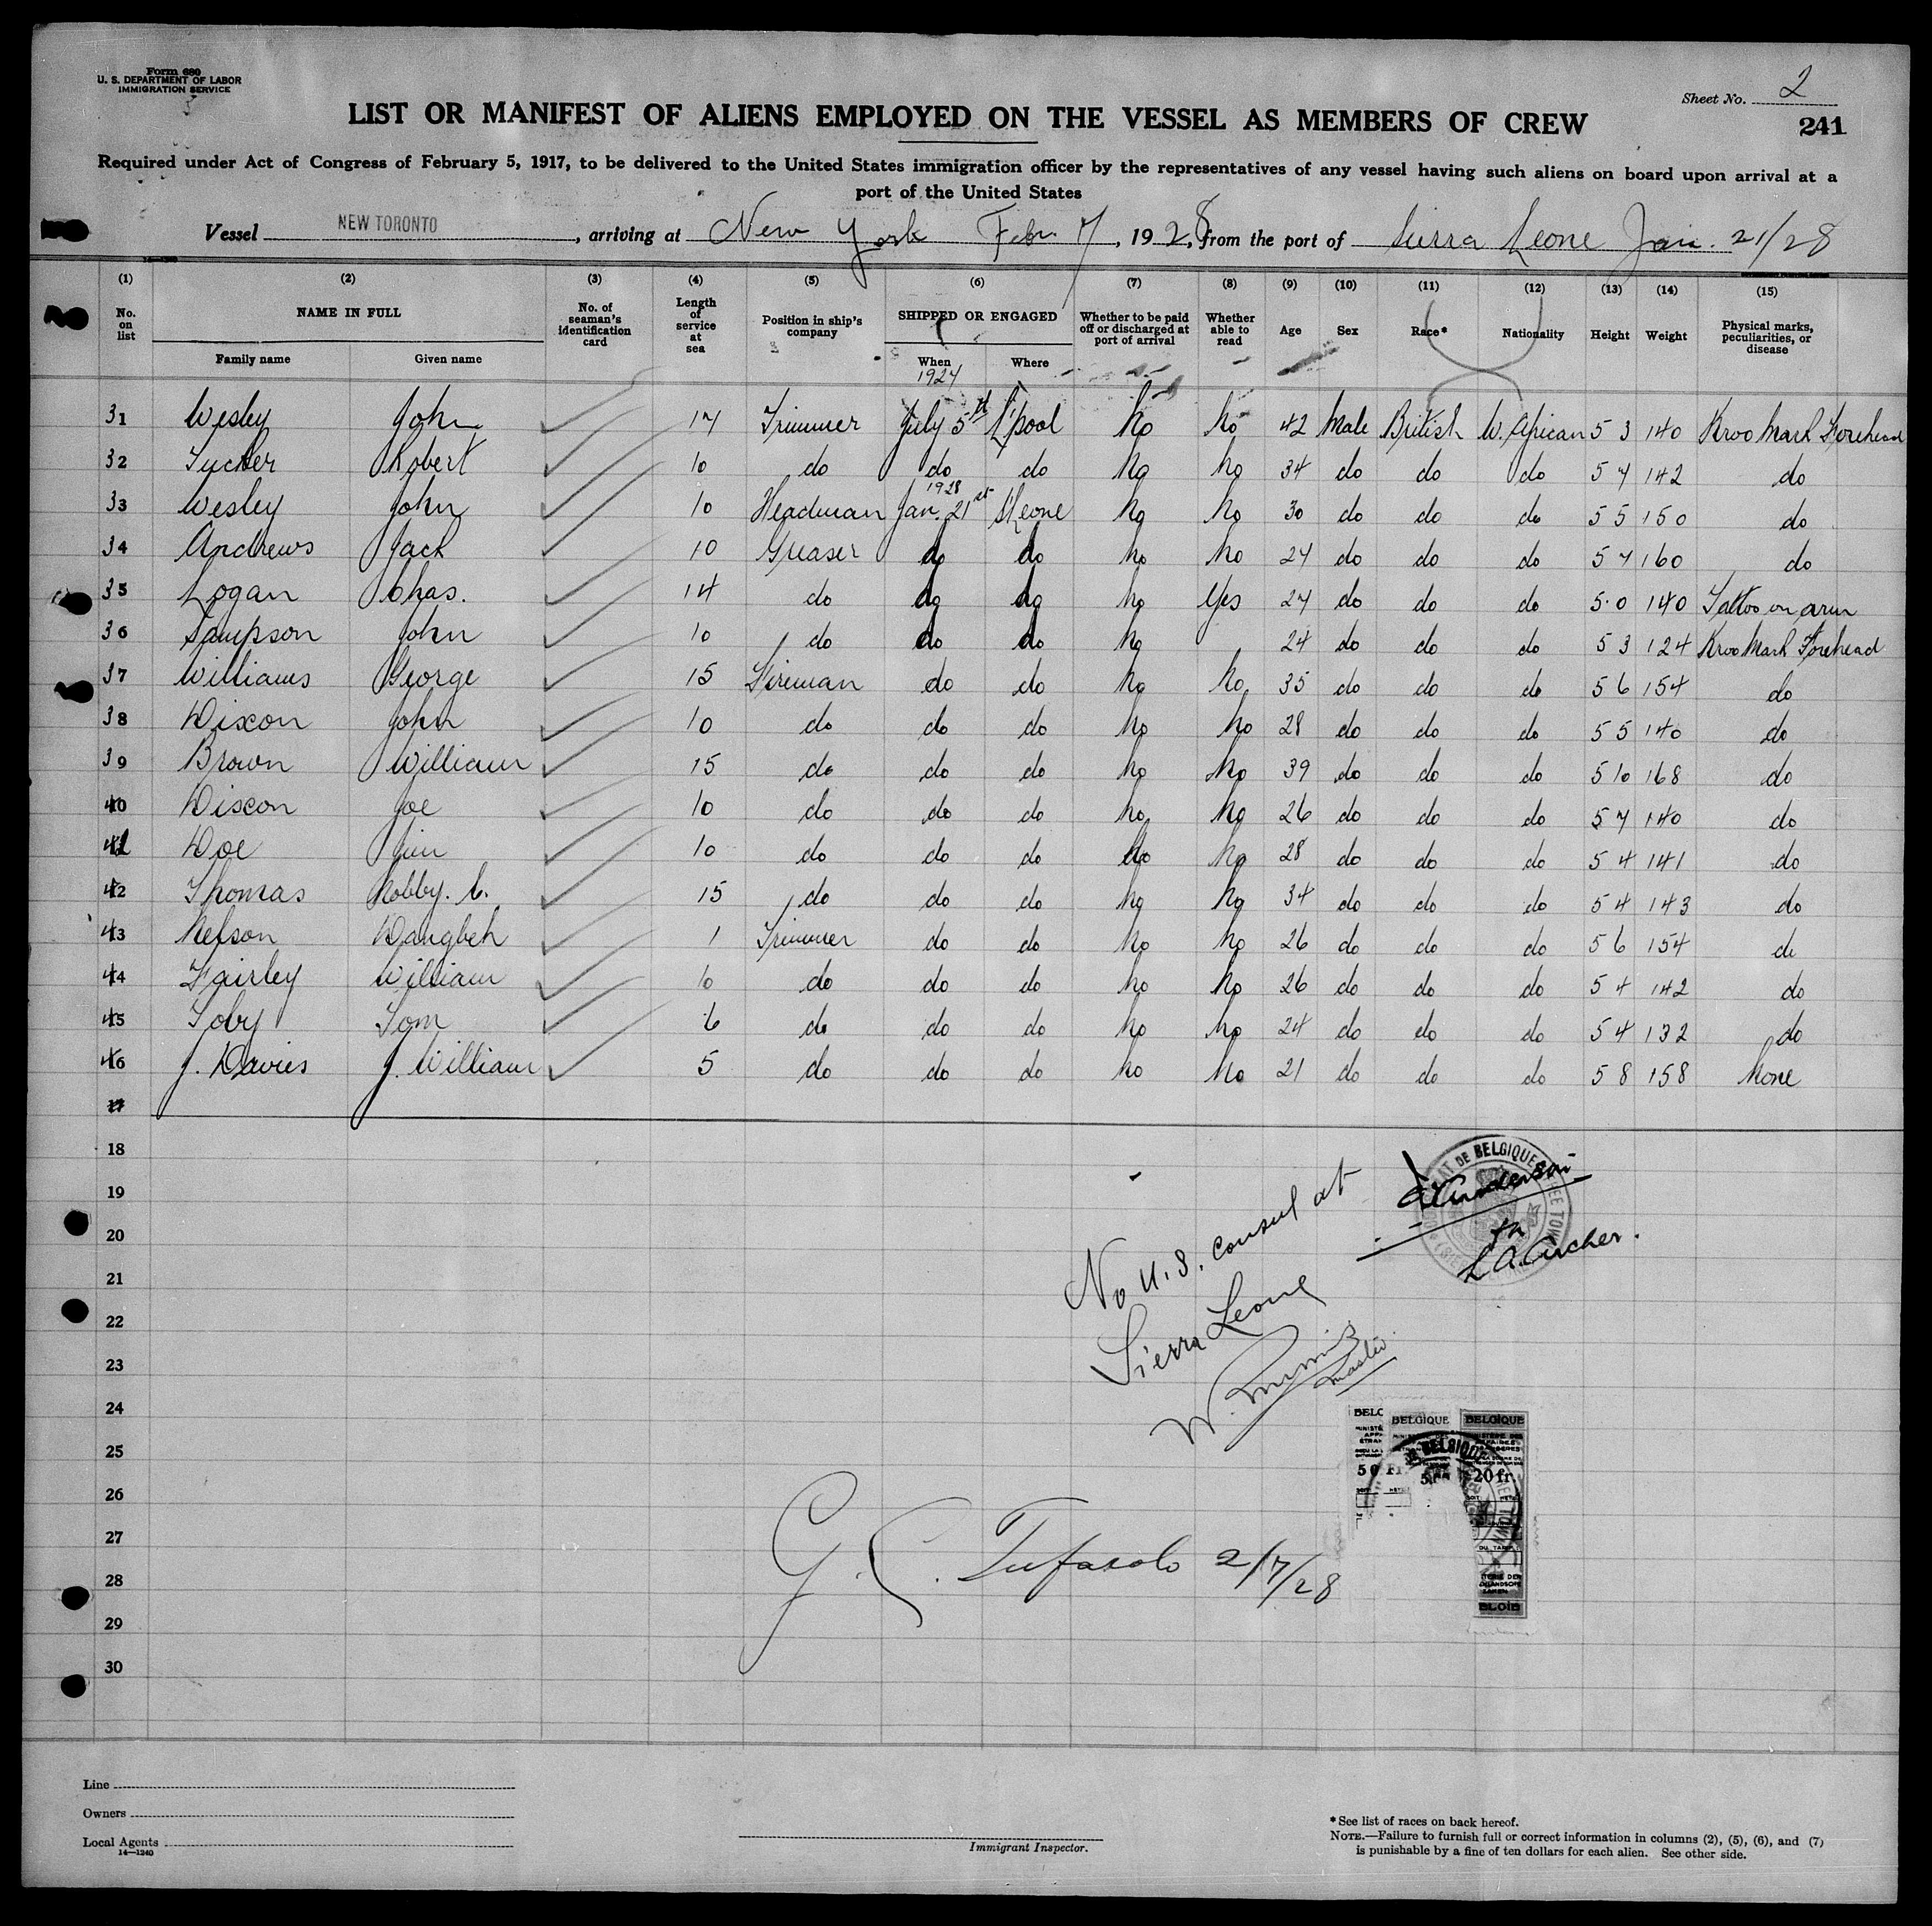 Form 680
U. S. DEPARTMENT OF LABOR
IMMIGRATION SERVICE
Sheet No. 2
LIST OR MANIFEST OF ALIENS EMPLOYED ON THE VESSEL AS MEMBERS OF CREW
241
Required under Act of Congress of February 5, 1917, to be delivered to the United States immigration officer by the representatives of any vessel having such aliens on board upon arrival at a
port of the United States
Vessel NEW TORONTO, arriving at New York Febr. 7, 1928, from the port of Sierra Leone Jan. 21/28
(1) (2) (3) (4) (5) (6) (7) (8) (9) (10) (11) (12) (13) (14) (15)
No. on list NAME IN FULL Family name Given name No. of seaman's identification card Length of service at sea Position in ship's company SHIPPED OR ENGAGED When Where Whether to be paid off or discharged at port of arrival Whether able to read Age Sex Race* Nationality Height Weight Physical marks, peculiarities, or disease
1927
31 Wesley John 17 Trimmer July 5th L'pool No No 42 Male British W. African 5 3 140 Kroo Mark Forehead
32 Tucker Robert 10 do do do No No 34 do do do 5 7 142 do
1928
33 Wesley John 10 Headman Jan. 21st S'Leone No No 30 do do do 5 5 150 do
34 Andrews Jack 10 Greaser do do No No 24 do do do 5 7 160 do
35 Logan Chas. 14 do do do No Yes 27 do do do 5.0 140 Tattoo on arm
36 Sampson John 10 do do do No 24 do do do 5 3 124 Kroo Mark Forehead
37 Williams George 15 Fireman do do No No 35 do do do 5 6 154 do
38 Dixon John 10 do do do No No 28 do do do 5 5 140 do
39 Brown William 15 do do do No No 39 do do do 5 10 168 do
40 Dixon Joe 10 do do do No No 26 do do do 5 7 140 do
41 Doe Jim 10 do do do No No 28 do do do 5 4 141 do
42 Thomas Bobby. C. 15 do do do No No 34 do do do 5 4 143 do
43 Nelson Dangbeh 1 Trimmer do do No No 26 do do do 5 6 154 do
44 Fairley William 10 do do do No No 26 do do do 5 4 142 do
45 Toby Tom 6 do do do No No 24 do do do 5 4 132 do
46 J. Davies J. William 5 do do do No No 21 do do do 5 8 158 None
17
18
19
20
21
22
23
24
25
26
27
28
29
30
No U.S. Consul at
Sierra Leone
Master
Anderson
L A Archer.
BELGIQUE BELGIQUE
50 Fr 20 fr.
2/7/28
Line
Owners
Local Agents
14—1240
Immigrant Inspector.
*See list of races on back hereof.
NOTE.—Failure to furnish full or correct information in columns (2), (5), (6), and (7)
is punishable by a fine of ten dollars for each alien. See other side.